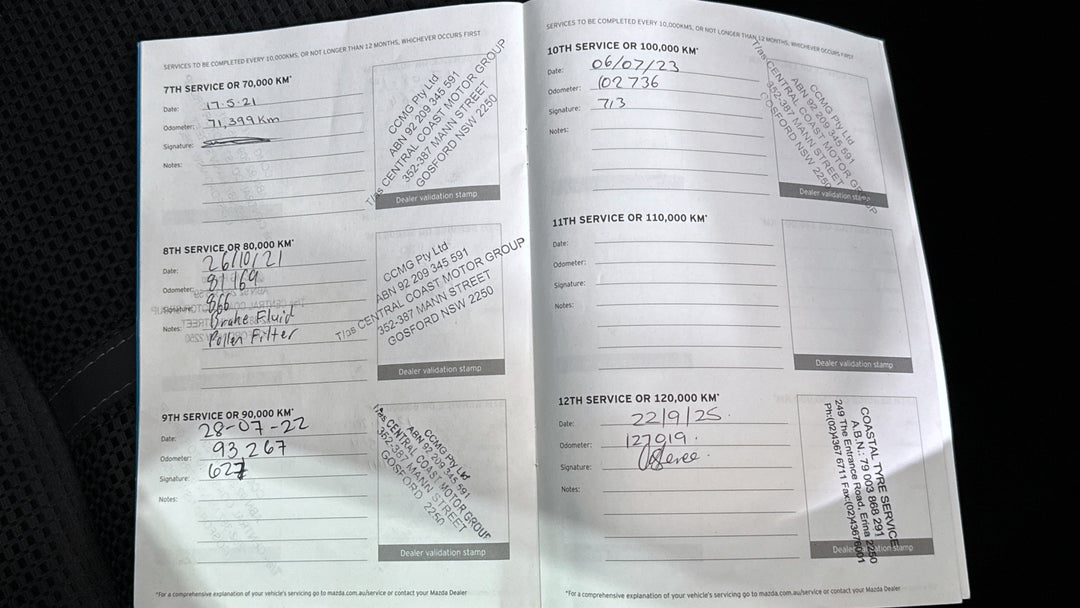 SERVICES TO BE COMPLETED EVERY 10,000KMS, OR NOT LONGER THAN 12 MONTHS, WHICHEVER OCCURS FIRST
7TH SERVICE OR 70,000 KM*
Date: 17.5.21
Odometer: 71,399 Km
Signature:
Notes:
CCMG Pty Ltd
ABN 92 209 345 591
T/as CENTRAL COAST MOTOR GROUP
352-387 MANN STREET
GOSFORD NSW 2250
Dealer validation stamp
8TH SERVICE OR 80,000 KM*
Date: 26/10/21
Odometer: 81169
Signature: 866
Notes: Brake Fluid
Pollen Filter
CCMG Pty Ltd
ABN 92 209 345 591
T/as CENTRAL COAST MOTOR GROUP
352-387 MANN STREET
GOSFORD NSW 2250
Dealer validation stamp
9TH SERVICE OR 90,000 KM*
Date: 28-07-22
Odometer: 93,267
Signature: 627
Notes:
CCMG Pty Ltd
ABN 92 209 345 591
T/as CENTRAL COAST MOTOR GROUP
352-387 MANN STREET
GOSFORD 2250
Dealer validation stamp
*For a comprehensive explanation of your vehicle's servicing go to mazda.com.au/service or contact your Mazda Dealer
SERVICES TO BE COMPLETED EVERY 10,000KMS, OR NOT LONGER THAN 12 MONTHS, WHICHEVER OCCURS FIRST
10TH SERVICE OR 100,000 KM*
Date: 06/07/23
Odometer: 102736
Signature: 713
Notes:
CCMG Pty Ltd
ABN 92 209 345 591
T/as CENTRAL COAST MOTOR GROUP
352-387 MANN STREET
GOSFORD NSW 2250
Dealer validation stamp
11TH SERVICE OR 110,000 KM*
Date:
Odometer:
Signature:
Notes:
Dealer validation stamp
12TH SERVICE OR 120,000 KM*
Date: 22/9/25.
Odometer: 127919.
Signature:
Notes:
COASTAL TYRE SERVICE
A.B.N.: 79 003 868 291
249 The Entrance Road, Erina 2250
Ph:(02)4367 6711 Fax:(02)43676001
Dealer validation stamp
*For a comprehensive explanation of your vehicle's servicing go to mazda.com.au/service or contact your Mazda Dealer